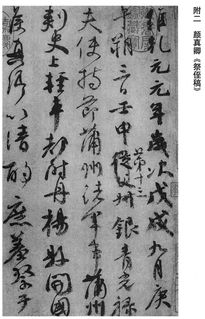 附二　颜真卿《祭侄稿》
維乾元元年歲次戊戌九月庚
午朔三日壬申第十三從父叔銀青光祿
夫使持節蒲州諸軍事蒲州
刺史上輕車都尉丹楊縣開國
侯真卿以清酌庶羞祭于